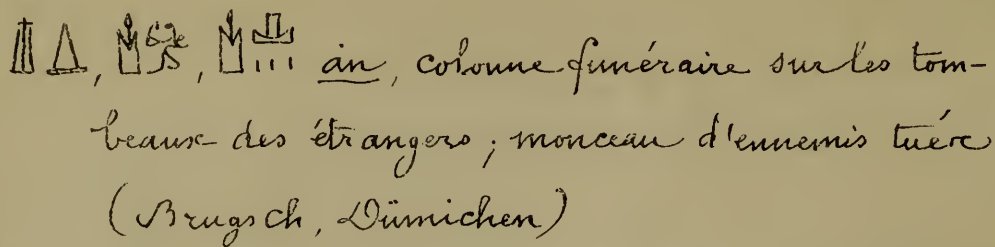 , , an, colonne funéraire sur les tom-
beaux des étrangers; monceau d'ennemis tués
(Brugsch, Dümichen)